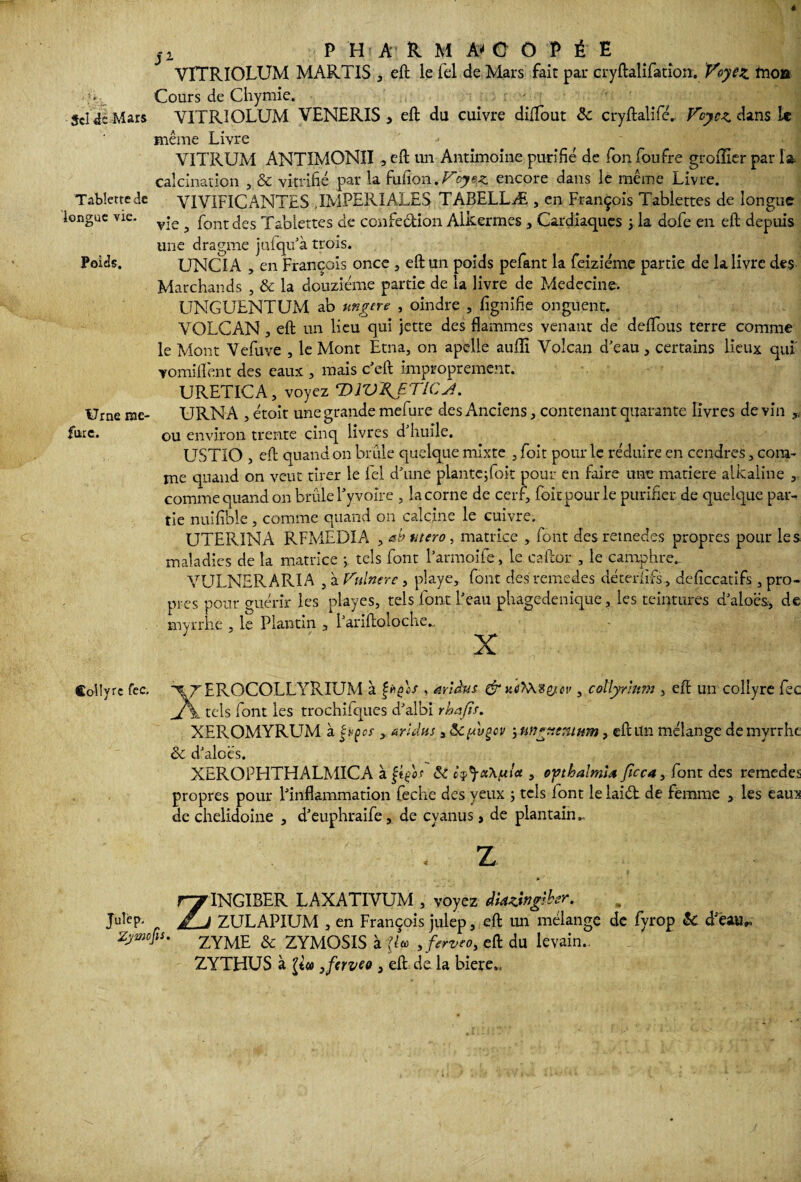 52 PHARMACOPÉE
VITRIOLUM MARTIS, est le sel de Mars fait par crystalisation. Voyez mon
Cours de Chymie.
Sel de Mars VITRIOLUM VENERIS, est du cuivre dissout & crystalisé. Voyez dans le
même Livre
VITRUM ANTIMONII, est un Antimoine purifié de son soufre grossier par la
calcination, & vitrifié par la fusion. Voyez encore dans le même Livre.
Tablette de VIVIFICANTES IMPERIALES TABELLÆ, en François Tablettes de longue
longue vie. vie, sont des Tablettes de confection Alkermes, Cardiaques ; la dose en est depuis
une dragme jusqu'à trois.
Poids. UNCIA, en François once, est un poids pesant la seiziéme partie de la livre des
Marchands, & la douziéme partie de la livre de Medecine.
UNGUENTUM ab ungere, oindre, signifie onguent.
VOLCAN, est un lieu qui jette des flammes venant de dessous terre comme
le Mont Vesuve, le Mont Etna, on apelle aussi Volcan d'eau, certains lieux qui
vomissent des eaux, mais c'est improprement.
URETICA, voyez DIURETICA.
Urne me- URNA, étoit une grande mesure des Anciens, contenant quarante livres de vin,
sure. ou environ trente cinq livres d'huile.
USTIO, est quand on brûle quelque mixte, soit pour le réduire en cendres, com-
me quand on veut tirer le sel d'une plante; soit pour en faire une matiere alkaline,
comme quand on brûle l'yvoire, la corne de cerf, soit pour le purifier de quelque par-
tie nuisible, comme quand on calcine le cuivre.
UTERINA REMEDIA, ab utero, matrice, sont des remedes propres pour les
maladies de la matrice ; tels sont l'armoise, le castor, le camphre.
VULNERARIA, à Vulnere, playe, sont des remedes détersifs, desiccatifs, pro-
pres pour guérir les playes, tels sont l'eau phagedenique, les teintures d'aloës, de
myrrhe, le Plantin, l'aristoloche.
X
Collyre sec. XEROCOLLYRIUM à ξηρὸς, aridus & κολλύριον, collyrium, est un collyre sec
tels sont les trochisques d'albi rhasis.
XEROMYRUM à ξηρος, aridus, & μύρον ; unguentum, est un mélange de myrrhe
& d'aloës.
XEROPHTHALMICA à ξηρὸς & ὀφθαλμία, opthalmia sicca, sont des remedes
propres pour l'inflammation seche des yeux ; tels sont le laict de femme, les eaux
de chelidoine, d'euphraise, de cyanus, de plantain.
Z
ZINGIBER LAXATIVUM, voyez diazingiber.
Julep. ZULAPIUM, en François julep, est un mélange de syrop & d'eau.
Zymosis. ZYME & ZYMOSIS à ζέω, ferveo, est du levain.
ZYTHUS à ζέω, ferveo, est de la biere.